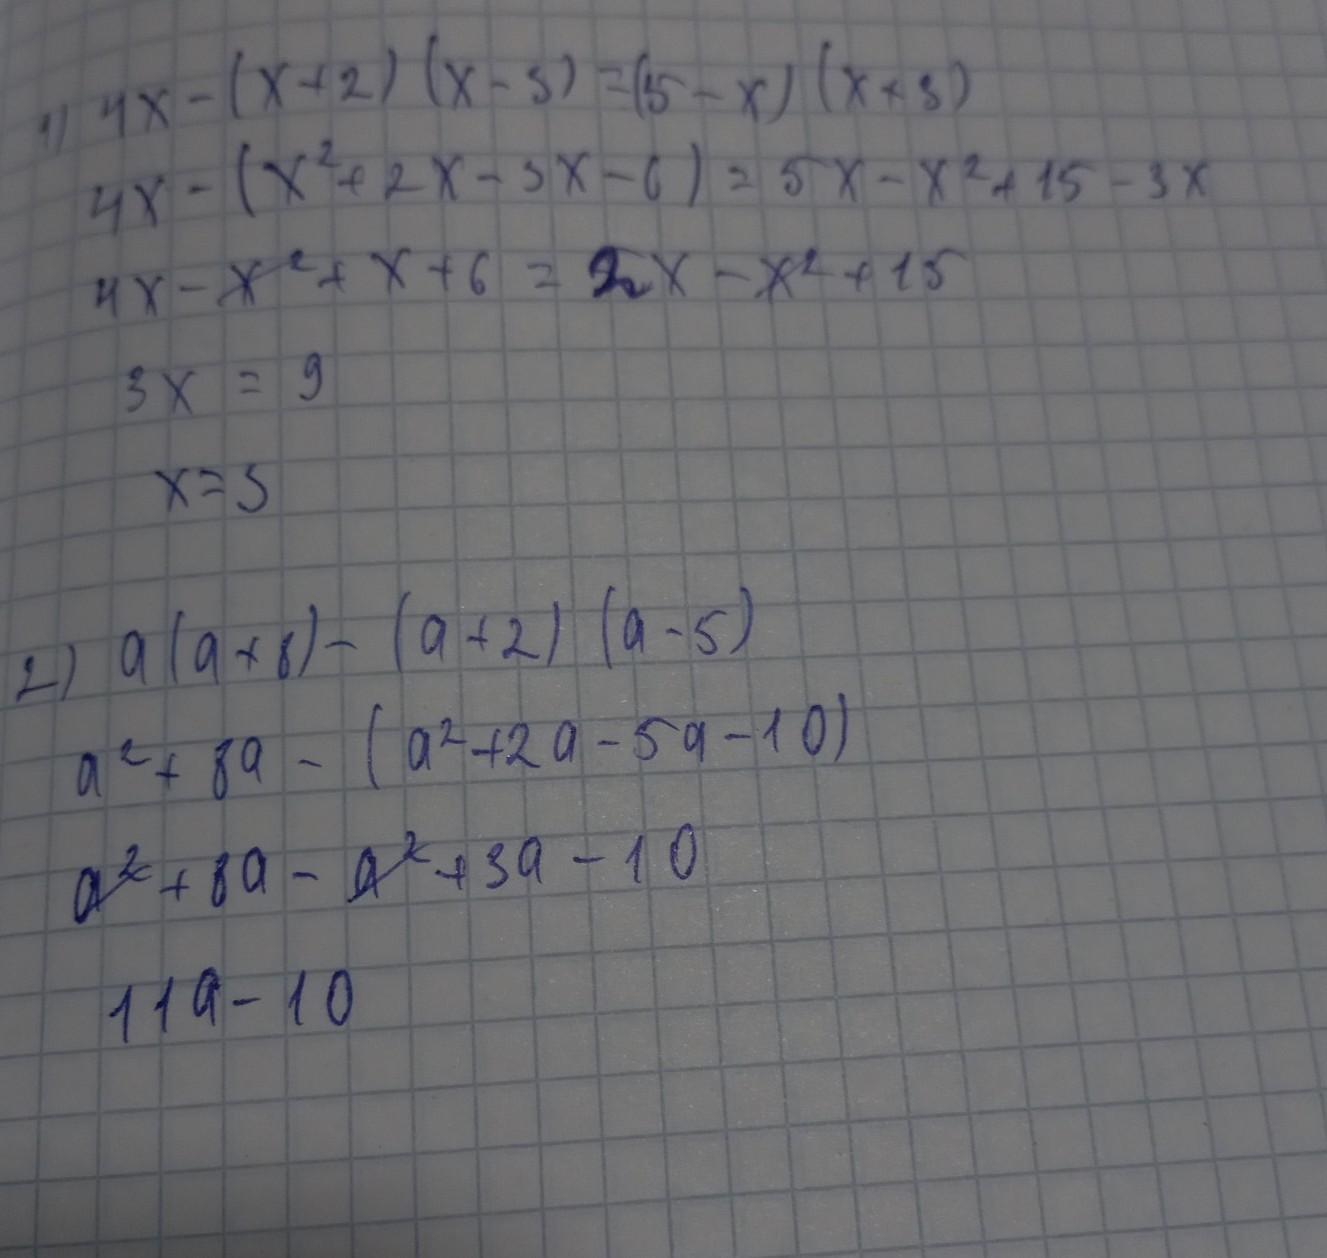 1) 4x - (x+2) (x-3) = (5-x) (x+3)
4x - (x²+2x-3x-6) = 5x-x²+15-3x
4x-x²+x+6 = 2x-x²+15
3x = 9
x=3
2) a(a+8) - (a+2) (a-5)
a²+8a - (a²+2a-5a-10)
a²+8a-a²+3a-10
11a-10